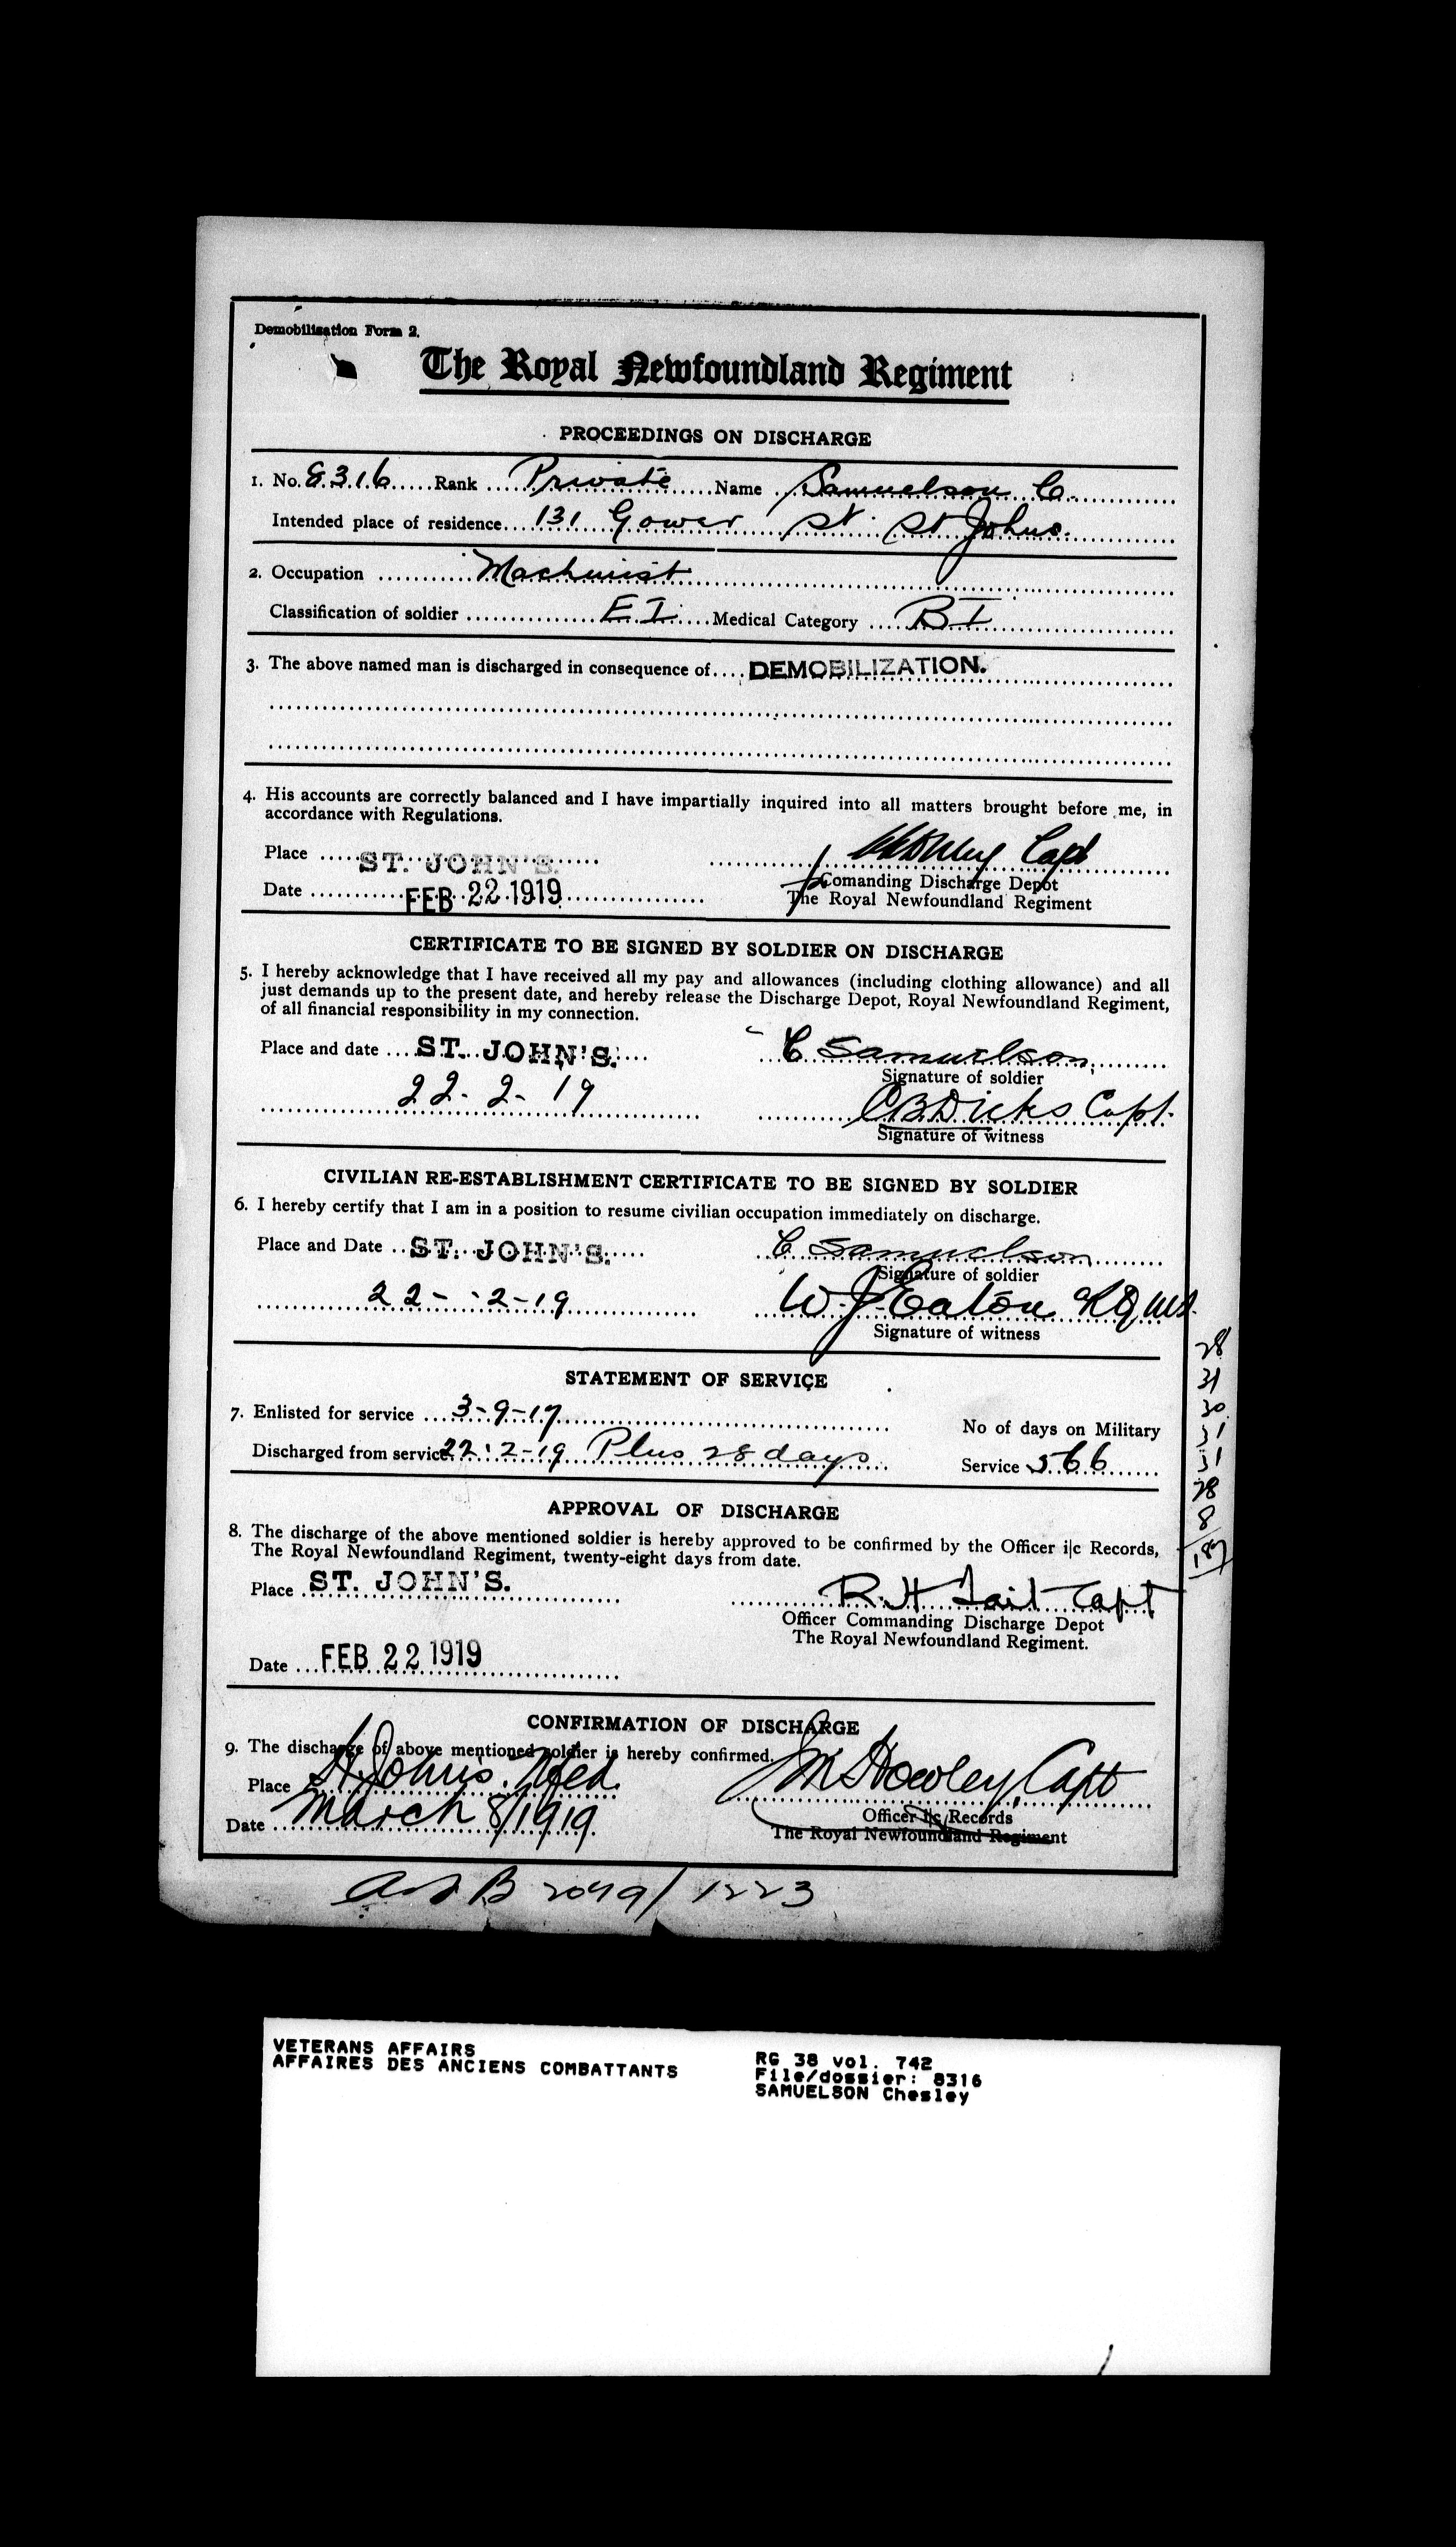 Demobilization Form 2.
The Royal Newfoundland Regiment
PROCEEDINGS ON DISCHARGE
1. No. 8316 Rank Private Name Samuelson C.
Intended place of residence 131 Gower St. St Johns.
2. Occupation Machinist
Classification of soldier E I Medical Category B I
3. The above named man is discharged in consequence of DEMOBILIZATION.
4. His accounts are correctly balanced and I have impartially inquired into all matters brought before me, in
accordance with Regulations.
Place ST. JOHN'S. Capt
Date FEB 22 1919 Comanding Discharge Depot
The Royal Newfoundland Regiment
CERTIFICATE TO BE SIGNED BY SOLDIER ON DISCHARGE
5. I hereby acknowledge that I have received all my pay and allowances (including clothing allowance) and all
just demands up to the present date, and hereby release the Discharge Depot, Royal Newfoundland Regiment,
of all financial responsibility in my connection.
Place and date ST. JOHN'S. C Samuelson
Signature of soldier
22-2-19 C B Dicks Capt.
Signature of witness
CIVILIAN RE-ESTABLISHMENT CERTIFICATE TO BE SIGNED BY SOLDIER
6. I hereby certify that I am in a position to resume civilian occupation immediately on discharge.
Place and Date ST. JOHN'S. C Samuelson
Signature of soldier
22-2-19 W. J. Eaton RQMS.
Signature of witness
STATEMENT OF SERVICE
7. Enlisted for service 3-9-17 No of days on Military
Discharged from service 22-2-19 Plus 28 days Service 566
28
31
30
31
31
28
8
187
APPROVAL OF DISCHARGE
8. The discharge of the above mentioned soldier is hereby approved to be confirmed by the Officer i|c Records,
The Royal Newfoundland Regiment, twenty-eight days from date.
Place ST. JOHN'S. R. H Tait Capt
Officer Commanding Discharge Depot
The Royal Newfoundland Regiment.
Date FEB 22 1919
CONFIRMATION OF DISCHARGE
9. The discharge of above mentioned soldier is hereby confirmed.
Place St. John's. Nfld. Howley, Capt
Officer i|c Records
Date March 8/1919 The Royal Newfoundland Regiment
B 2079/1223
VETERANS AFFAIRS
AFFAIRES DES ANCIENS COMBATTANTS
RG 38 vol. 742
File/dossier: 8316
SAMUELSON Chesley